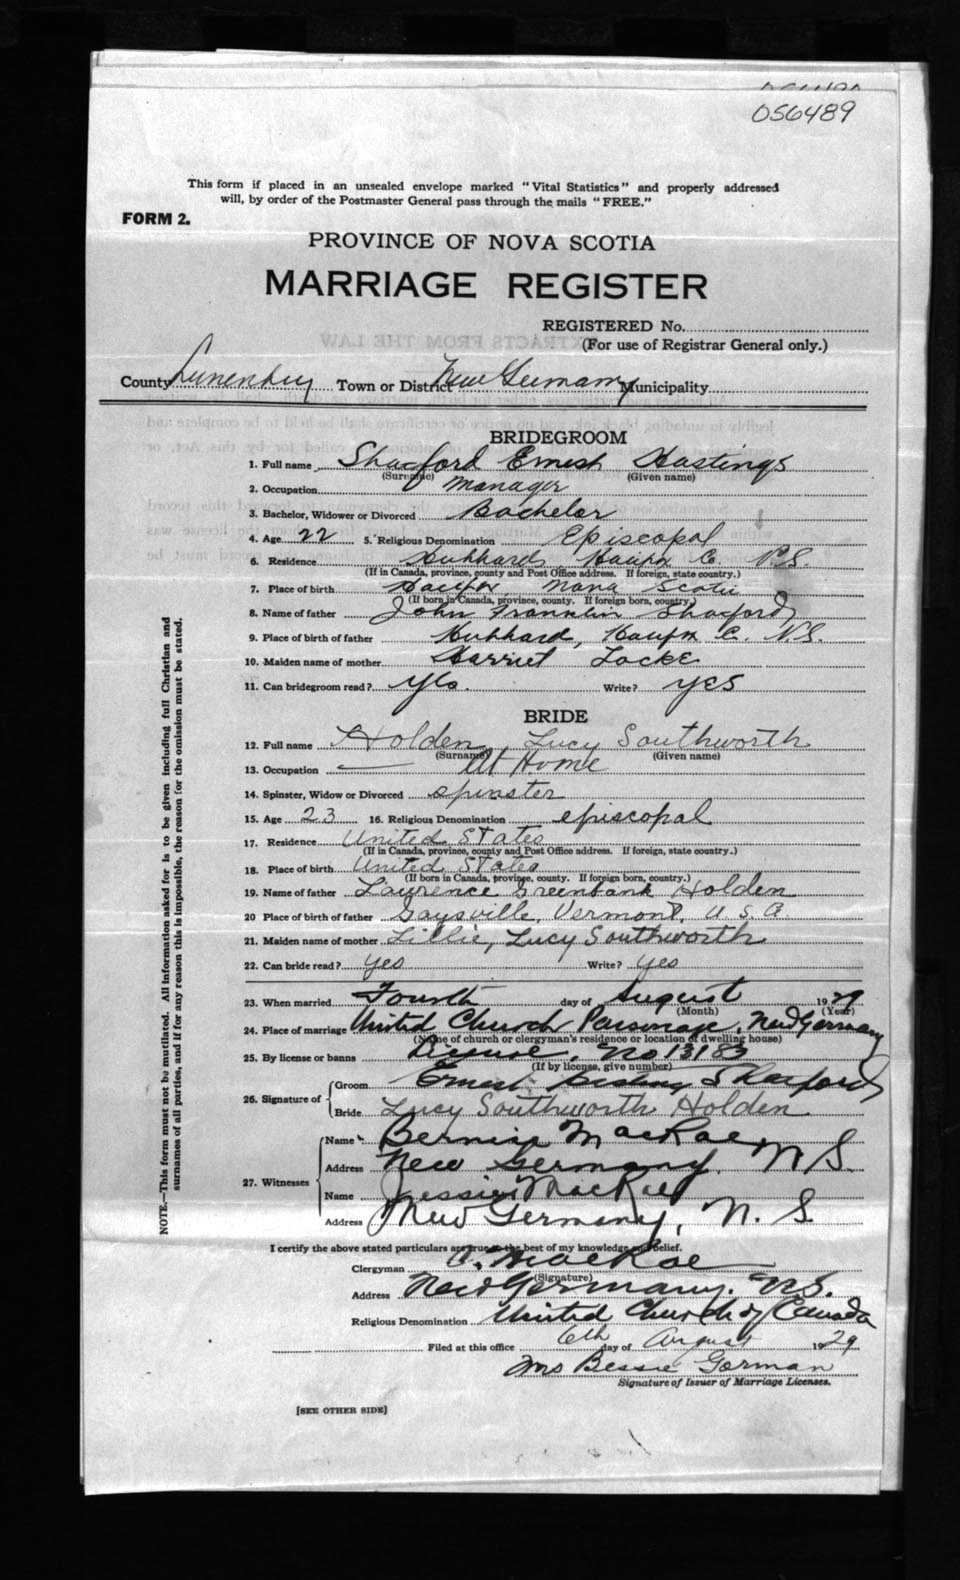 056489
This form if placed in an unsealed envelope marked "Vital Statistics" and properly addressed
will, by order of the Postmaster General pass through the mails "FREE."
FORM 2.
PROVINCE OF NOVA SCOTIA
MARRIAGE REGISTER
REGISTERED No.
(For use of Registrar General only.)
County Lunenburg Town or District New Germany Municipality
BRIDEGROOM
1. Full name Shatford Ernest Hastings
(Surname) (Given name)
2. Occupation Manager
3. Bachelor, Widower or Divorced Bachelor
4. Age 22 5. Religious Denomination Episcopal
6. Residence Hubbards Halifax Co. N.S.
(If in Canada, province, county and Post Office address. If foreign, state country.)
7. Place of birth Halifax, Nova Scotia
(If born in Canada, province, county. If foreign born, country)
8. Name of father John Franklin Shatford
9. Place of birth of father Hubbard, Halifax C. N.S.
10. Maiden name of mother Harriet Locke
11. Can bridegroom read? Yes. Write? yes
BRIDE
12. Full name Holden Lucy Southworth
(Surname) (Given name)
13. Occupation At Home
14. Spinster, Widow or Divorced Spinster
15. Age 23 16. Religious Denomination episcopal
17. Residence United States
(If in Canada, province, county and Post Office address. If foreign, state country.)
18. Place of birth United States
(If born in Canada, province, county. If foreign born, country.)
19. Name of father Lawrence Greenbank Holden
20 Place of birth of father Gaysville, Vermont, U.S.A.
21. Maiden name of mother Lillie, Lucy Southworth
22. Can bride read? yes Write? yes
23. When married Fourth day of August 1929
(Month) (Year)
24. Place of marriage United Church Parsonage, New Germany
(Name of church or clergyman's residence or location of dwelling house)
25. By license or banns License, No 13183
(If by license, give number)
26. Signature of Groom Ernest Hastings Shatford
Bride Lucy Southworth Holden
27. Witnesses Name Bernice MacRae
Address New Germany. N S.
Name Jessie MacRae
Address New Germany, N. S.
I certify the above stated particulars are true to the best of my knowledge and belief.
Clergyman A. MacRae
(Signature)
Address New Germany. N.S.
Religious Denomination United Church of Canada
Filed at this office 6th day of August 1929
Mrs Bessie Gorman
Signature of Issuer of Marriage Licenses.
[SEE OTHER SIDE]
NOTE.—This form must not be mutilated. All information asked for is to be given including full Christian and
surnames of all parties, and if for any reason this is impossible, the reason for the omission must be stated.